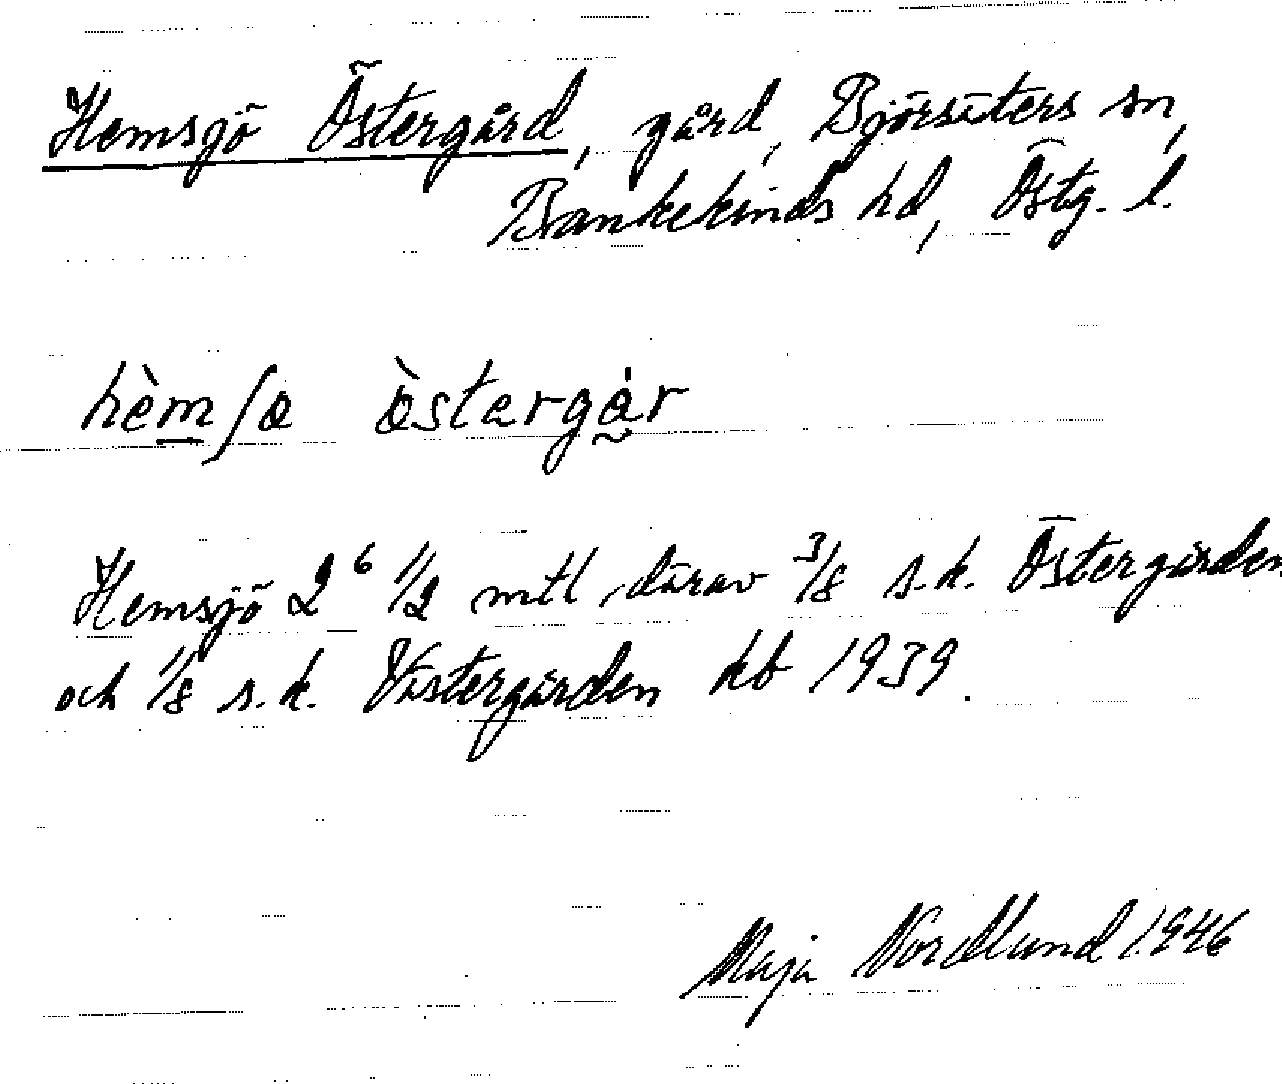 Hemsjö Östergård, gård, Björsäters sn,
Bankekinds hd, Östg. l.
hèmʃɵ ɵ̀stərgår
Hemsjö 2⁶ 1/2 mtl därav 3/8 s.k. Östergården
och 1/8 s.k. Västergården kb 1939.
Maja Nordlund 1946